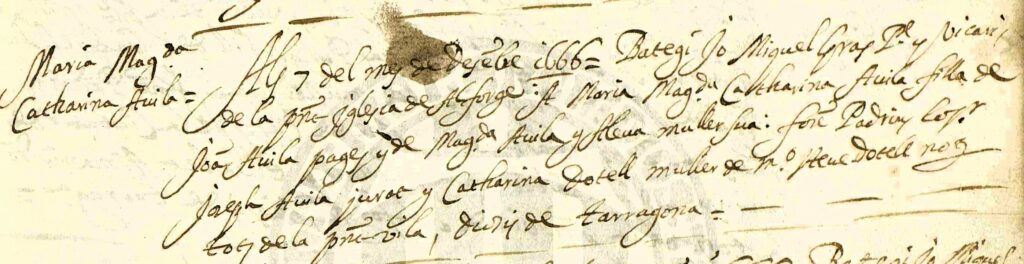 Maria Mag.da
Catharina Auila=
Als 7 del mes de Desebe 1666= Bategi Jo Miquel Gras Pre. y Vicari
de la pnt Iglesia de Alforge: A Maria Magda Catharina Auila filla de
Joā Auila pages y de Magda Auila y Aleua muller sua: forē Padrins los Sr
Joseph Auila jurat y Catharina Dotell muller de mo. steue dotell
tots de la pnt vila, diocis de Tarragona=
Bategi Jo Miquel